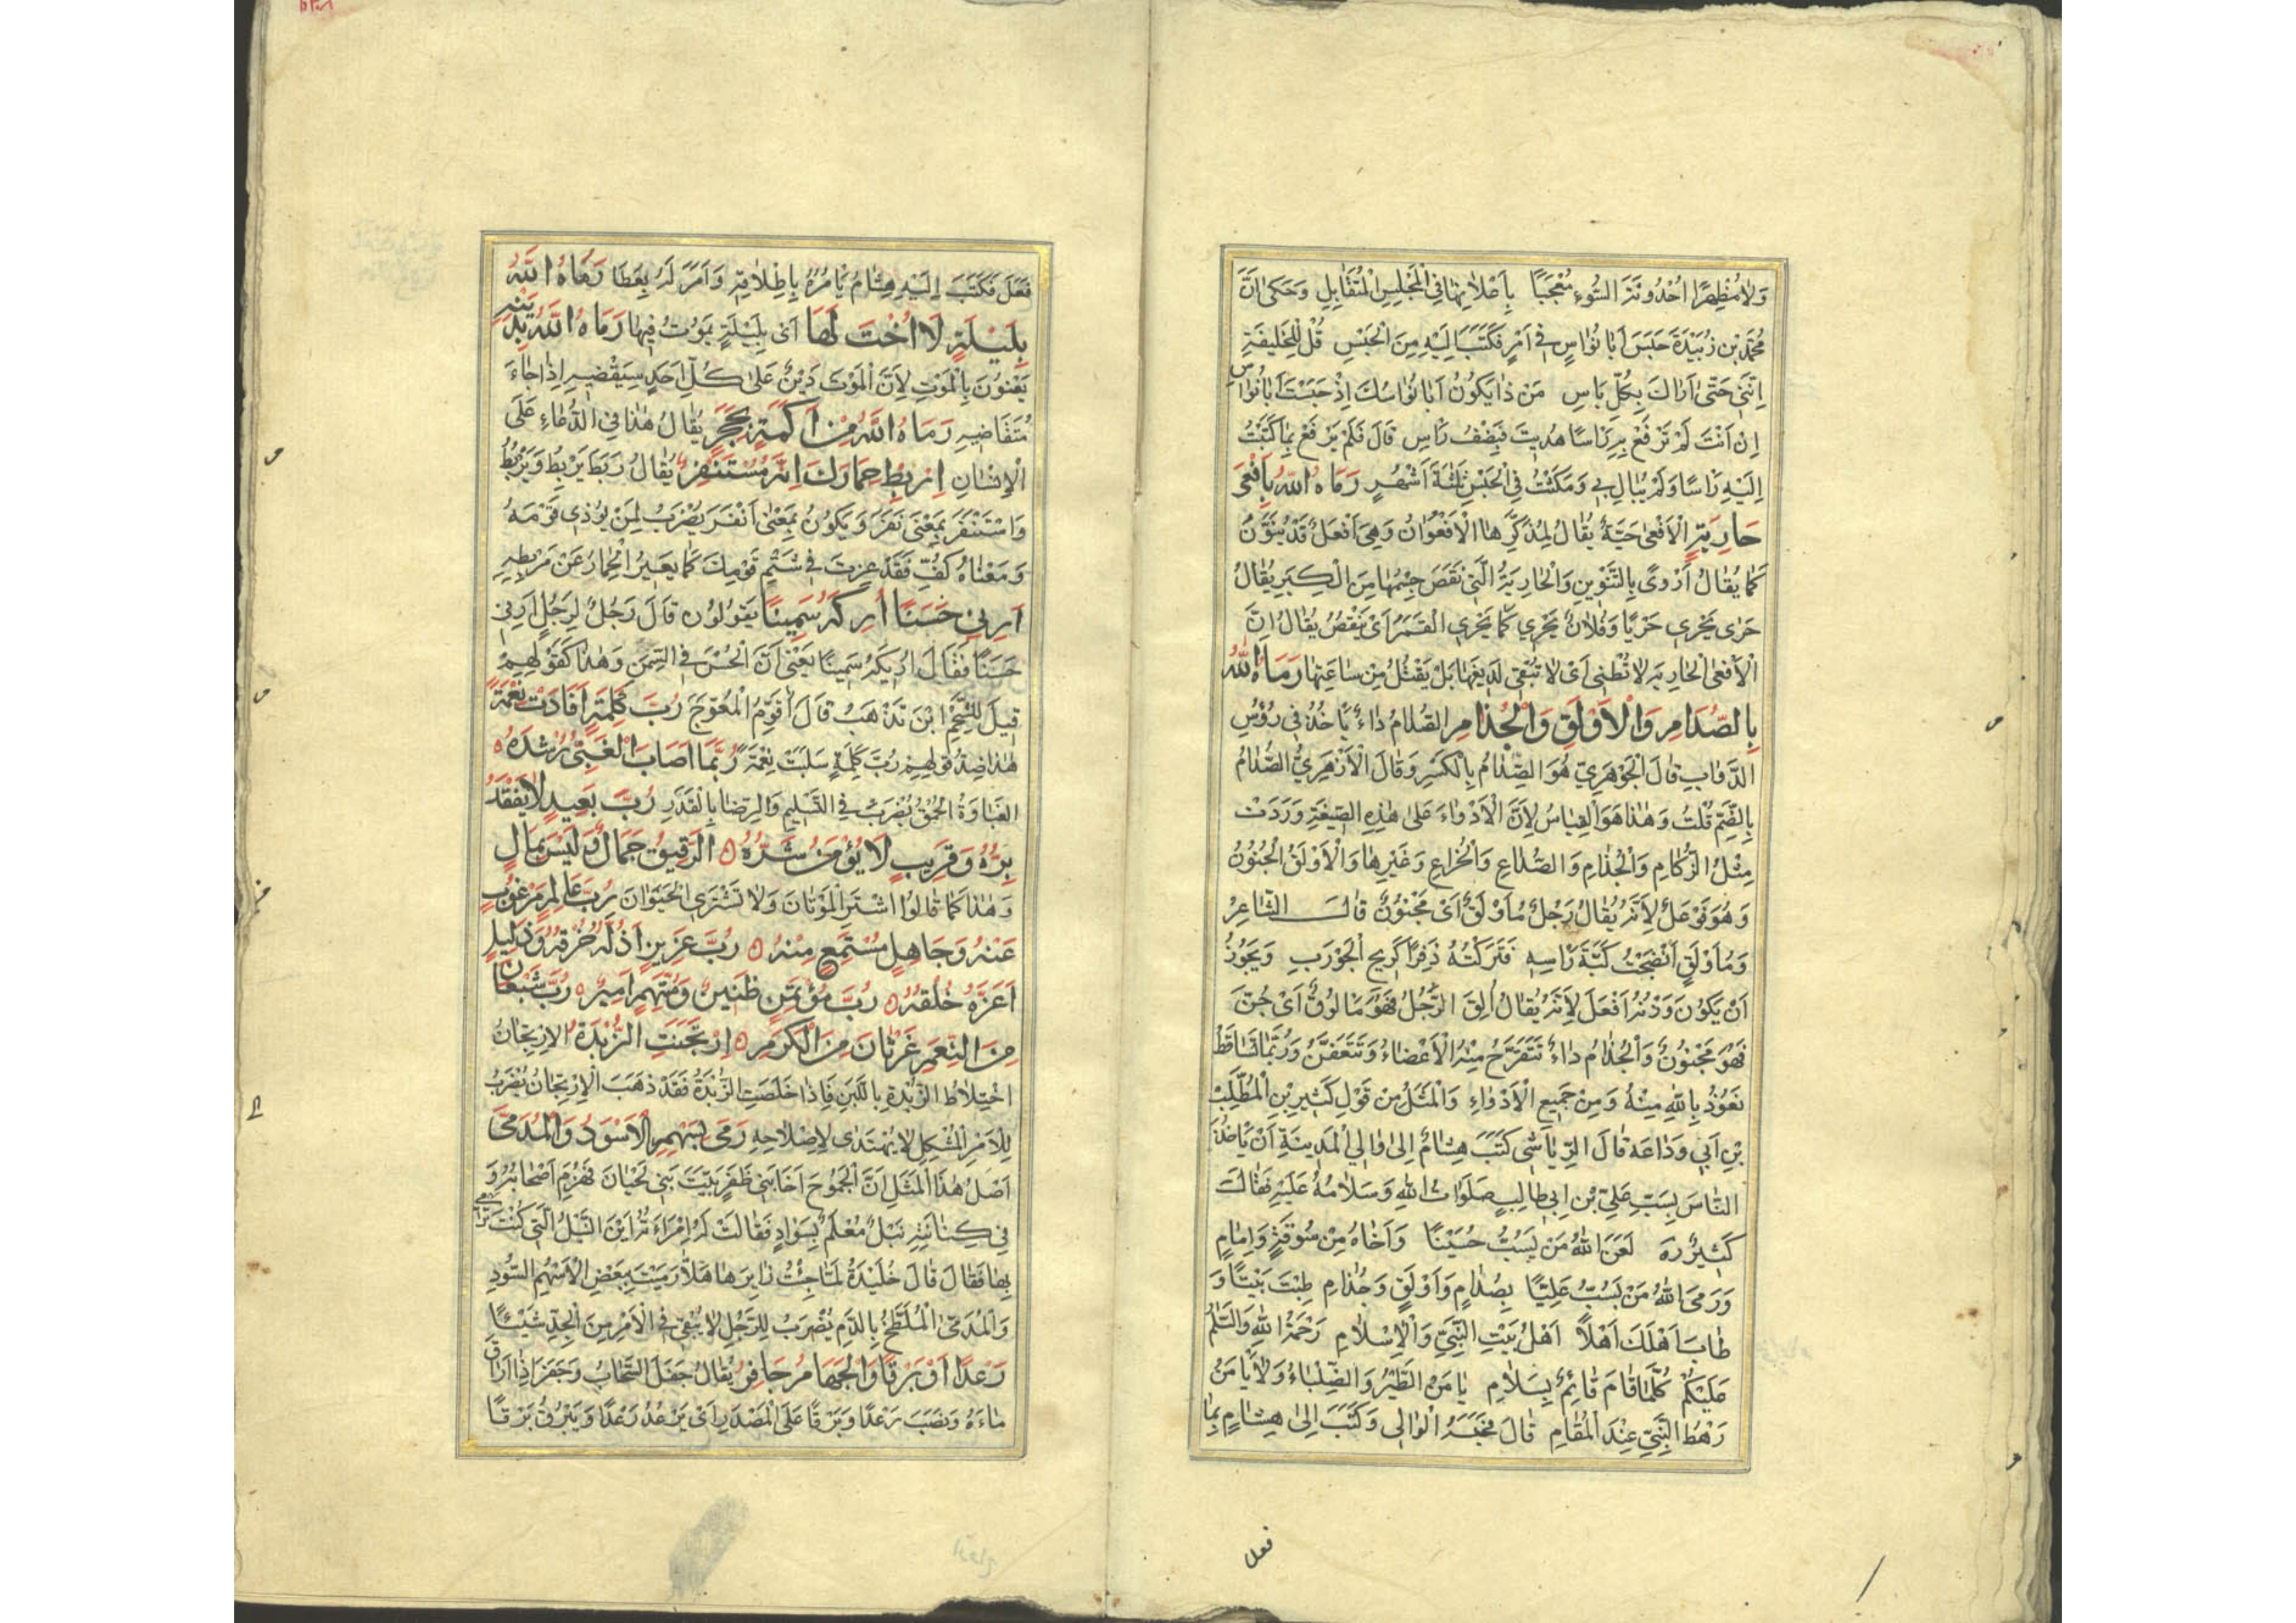 وَلَا مُظْهِرًا اُحْدُوثَةَ السُّوءِ مُعْجَبًا بِاَعْلَانِهَا فِي الْمَجْلِسِ الْمُتَقَابِلِ وَحَكَى اَنَّ
مُحَمَّدَ بْنَ زُبَيْدَةَ حَبَسَ اَبَا نُوَاسٍ فِي اَمْرٍ فَكَتَبَ اِلَيْهِ مِنَ الْحَبْسِ قُلْ لِلْخَلِيفَةِ
اِنَّنِي حَتَّى اَرَاكَ بِكُلِّ بَاسِ مَنْ ذَا يَكُونُ اَبَا نُوَاسِكَ اِذْ حَبَسْتَ اَبَا نُوَاسِ
اِنْ اَنْتَ لَمْ تَرْفَعْ بِهِ رَاْسًا هُدِيتَ فَنِصْفُ رَاْسِ قَالَ فَلَمْ يَرْفَعْ بِمَا كَتَبْتُ
اِلَيْهِ رَاْسًا وَلَمْ يُبَالِ بِي وَمَكَثْتُ فِي الْحَبْسِ ثَلٰثَةَ اَشْهُرٍ رَمَاهُ اللّٰهُ بِاَفْعَى
حَارِيَةٍ الْاَفْعَى حَيَّةٌ يُقَالُ لِمُذَكَّرِهَا الْاَفْعُوَانُ وَهِيَ اَفْعَلُ قَدْ يُنَوَّنُ
كَمَا يُقَالُ اَرْوًى بِالتَّنْوِينِ وَالْحَارِيَةُ الَّتِي نَقَصَ جِسْمُهَا مِنَ الْكِبَرِ يُقَالُ
حَرَى يَحْرِي حَرْيًا وَفُلَانٌ يَحْرِي كَمَا يَحْرِي الْقَمَرُ اَيْ يَنْقُصُ يُقَالُ اِنَّ
الْاَفْعَى الْحَارِيَةَ لَا تُطْنِي اَيْ لَا تُبْقِي لَدِيغَهَا بَلْ يَقْتُلُ مِنْ سَاعَتِهَا رَمَاهُ اللّٰهُ
بِالصُّدَامِ وَالْاَوْلَقِ وَالْجُذَامِ الصُّدَامُ دَاءٌ يَاْخُذُ فِي رُؤُسِ
الدَّوَابِّ قَالَ الْجَوْهَرِيّ هُوَ الصِّدَامُ بِالْكَسْرِ وَقَالَ الْاَزْهَرِيُّ الصُّدَامُ
بِالضَّمِّ قُلْتُ وَهٰذَا هُوَ الْقِيَاسُ لِاَنَّ الْاَدْوَاءَ عَلَى هٰذِهِ الصِّيغَةِ وَرَدَتْ
مِثْلُ الزُّكَامِ وَالْجُذَامِ وَالصُّدَاعِ وَالْخُرَاعِ وَغَيْرِهَا وَالْاَوْلَقُ الْجُنُونُ
وَهُوَ فَوْعَلٌ لِاَنَّهُ يُقَالُ رَجُلٌ مُاَوْلَقٌ اَيْ مَجْنُونٌ قَالَ الشَّاعِرُ
وَمُاَوْلَقٍ اَنْضَجْتُ كَيَّةَ رَاْسِهِ فَتَرَكْتُهُ ذَفِرًا كَرِيحِ الْجَوْرَبِ وَيَجُوزُ
اَنْ يَكُونَ وَزْنُهُ اَفْعَلَ لِاَنَّهُ يُقَالُ اُلِقَ الرَّجُلُ فَهُوَ مَالُوقٌ اَيْ جُنَّ
فَهُوَ مَجْنُونٌ وَالْجُذَامُ دَاءٌ تَتَقَرَّحُ مِنْهُ الْاَعْضَاءُ وَتَتَعَفَّنُ وَرُبَّمَا تَسَاقَطُ
نَعُوذُ بِاللّٰهِ مِنْهُ وَمِنْ جَمِيعِ الْاَدْوَاءِ وَالْمَثَلُ مِنْ قَوْلِ كَثِيرِ بْنِ الْمُطَّلِبِ
بْنِ اَبِي وَدَاعَةَ قَالَ الرِّيَاشِي كَتَبَ هِشَامٌ اِلَى وَالِي الْمَدِينَةِ اَنْ يَاْخُذَ
النَّاسَ بِسَبِّ عَلِيِّ بْنِ اَبِي طَالِبٍ صَلَوَاتُ اللّٰهِ وَسَلَامُهُ عَلَيْهِ فَقَالَ
كَثِيرٌ لَعَنَ اللّٰهُ مَنْ يَسُبُّ حُسَيْنًا وَاَخَاهُ مِنْ سُوقَةٍ وَاِمَامِ
وَرَمَى اللّٰهُ مَنْ يَسُبُّ عَلِيًّا بِصُدَامٍ وَاَوْلَقٍ وَجُذَامِ طِبْتَ بَيْتًا وَ
طَابَ اَهْلُكَ اَهْلًا اَهْلُ بَيْتِ النَّبِيِّ وَالْاِسْلَامِ رَحْمَةُ اللّٰهِ وَالسَّلَامُ
عَلَيْكُمْ كُلَّمَا قَامَ قَائِمٌ بِسَلَامِ يَاْمَنُ الطَّيْرُ وَالظِّبَاءُ وَلَا يَاْمَنُ
رَهْطُ النَّبِيِّ عِنْدَ الْمَقَامِ قَالَ فَحَبَسَهُ الْوَالِي وَكَتَبَ اِلَى هِشَامٍ بِمَا
فعل
فَعَلَ فَكَتَبَ اِلَيْهِ هِشَامٌ يَاْمُرُهُ بِاِطْلَاقِهِ وَاَمَرَ لَهُ بِعَطَا رَمَاهُ اللّٰهُ
بِلَيْلَةٍ لَا اُخْتَ لَهَا اَيْ بِلَيْلَةٍ يَمُوتُ فِيهَا رَمَاهُ اللّٰهُ بِدَيْنِهِ
يَعْنُونَ بِالْمَوْتِ لِاَنَّ الْمَوْتَ دَيْنٌ عَلَى كُلِّ اَحَدٍ سَيَقْضِيهِ اِذَا جَاءَ
مُتَقَاضِيهِ رَمَاهُ اللّٰهُ مِنْ اَكَمَةٍ بِحَجَرٍ يُقَالُ هٰذَا فِي الدُّعَاءِ عَلَى
الْاِنْسَانِ اِرْبِطْ حِمَارَكَ اِنَّهُ مُسْتَنْفِرٌ يُقَالُ رَبَطَ يَرْبِطُ وَيَرْبُطُ
وَاسْتَنْفَرَ بِمَعْنَى نَفَرَ وَيَكُونُ بِمَعْنَى اَنْفَرَ يُضْرَبُ لِمَنْ يُؤْذِي قَوْمَهُ
وَمَعْنَاهُ كُفَّ فَقَدْ عِرْتَ فِي شَتْمِ قَوْمِكَ كَمَا يَعِيرُ الْحِمَارُ عَنْ مَرْبِطِهِ
اَرِنِي حَسَنًا اُرِكَهُ سَمِينًا يَقُولُونَ قَالَ رَجُلٌ لِرَجُلٍ اَرِنِي
حَسَنًا فَقَالَ اُرِيكَهُ سَمِينًا يَعْنِي اَنَّ الْحُسْنَ فِي السِّمَنِ وَهٰذَا كَقَوْلِهِمْ
قِيلَ لِلشَّحْمِ اَيْنَ تَذْهَبُ قَالَ اُقَوِّمُ الْمُعْوَجَّ رُبَّ كَلِمَةٍ اَفَادَتْ نِعْمَةً
هٰذَا ضِدُّ قَوْلِهِمْ رُبَّ كَلِمَةٍ سَلَبَتْ نِعْمَةً رُبَّمَا اَصَابَ الْغَبِيُّ رُشْدَهُ
الْغَبَاوَةُ الْحُمْقُ يُضْرَبُ فِي التَّسْلِيمِ وَالرِّضَا بِالْقَدَرِ رُبَّ بَعِيدٍ لَا يُفْقَدُ
بِرُّهُ وَقَرِيبٍ لَا يُؤْمَنُ شَرُّهُ الرَّقِيقُ جَمَالٌ وَلَيْسَ بِمَالٍ
وَهٰذَا كَمَا قَالُوا اشْتَرِ الْمَوَتَانَ وَلَا تَشْتَرِي الْحَيَوَانَ رُبَّ عَالِمٍ مَرْغُوبٍ
عَنْهُ وَجَاهِلٍ مُسْتَمَعٍ مِنْهُ رُبَّ عَزِيزٍ اَذَلَّهُ خُرْقُهُ وَذَلِيلٍ
اَعَزَّهُ خُلُقُهُ رُبَّ مُؤْتَمَنٍ ظَنِينٌ وَمُتَّهَمٍ اَمِينٌ رُبَّ شَبْعَانَ
مِنَ النِّعَمِ غَرْثَانَ مِنَ الْكَرَمِ اِرْتَجَنَتِ الزُّبْدَةُ الْاِرْتِجَانُ
اخْتِلَاطُ الزُّبْدَةِ بِاللَّبَنِ فَاِذَا خَلَصَتِ الزُّبْدَةُ فَقَدْ ذَهَبَ الْاِرْتِجَانُ يُضْرَبُ
لِلْاَمْرِ الْمُشْكِلِ لَا يُهْتَدَى لِاِصْلَاحِهِ رَمَى بِسَهْمِهِ الْاَسْوَدُ وَالْمُدَمَّى
اَصْلُ هٰذَا الْمَثَلِ اِنَّ الْجَمُوحَ اَخَا بَنِي ظَفَرٍ بَيَّتَ بَنِي لَحْيَانَ فَهُزِمَ اَصْحَابُهُ وَ
فِي كِنَانَتِهِ نَبْلٌ مُعْلَمٌ بِسَوَادٍ فَقَالَتْ لَهُ امْرَاَتُهُ اَيْنَ النَّبْلُ الَّتِي كُنْتَ تَرْمِي
بِهَا فَقَالَ قَالَ خُلَيْدَةُ لَمَّا جِئْتُ زَايِرَهَا هَلَّا رَمَيْتَ بِبَعْضِ الْاَسْهُمِ السُّودِ
وَالْمُدَمَّى الْمُلَطَّخُ بِالدَّمِ يُضْرَبُ لِلرَّجُلِ لَا يُبْقِي فِي الْاَمْرِ مِنَ الْجِدِّ شَيْئًا
رَعْدًا اَوْ بَرْقًا وَالْجَهَامُ جَافِرٌ يُقَالُ جَفَلَ السَّحَابُ وَجَفَرَ اِذَا اَرَاقَ
مَاءَهُ وَنَصَبَ رَعْدًا وَبَرْقًا عَلَى الْمَصْدَرِ اَيْ يَرْعُدُ رَعْدًا وَيَبْرُقُ بَرْقًا